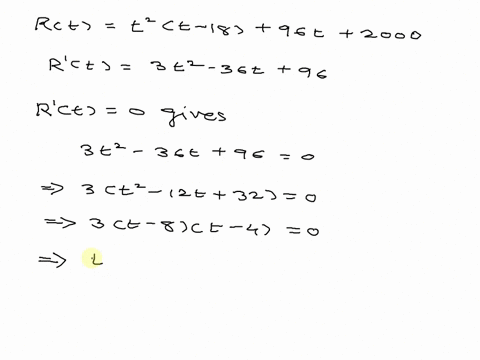 R(t) = t² (t-18) + 96t + 2000
R'(t) = 3t² - 36t + 96
R'(t) = 0 gives
3t² - 36t + 96 = 0
⇒ 3(t² - 12t + 32) = 0
⇒ 3(t-8)(t-4) = 0
⇒ t